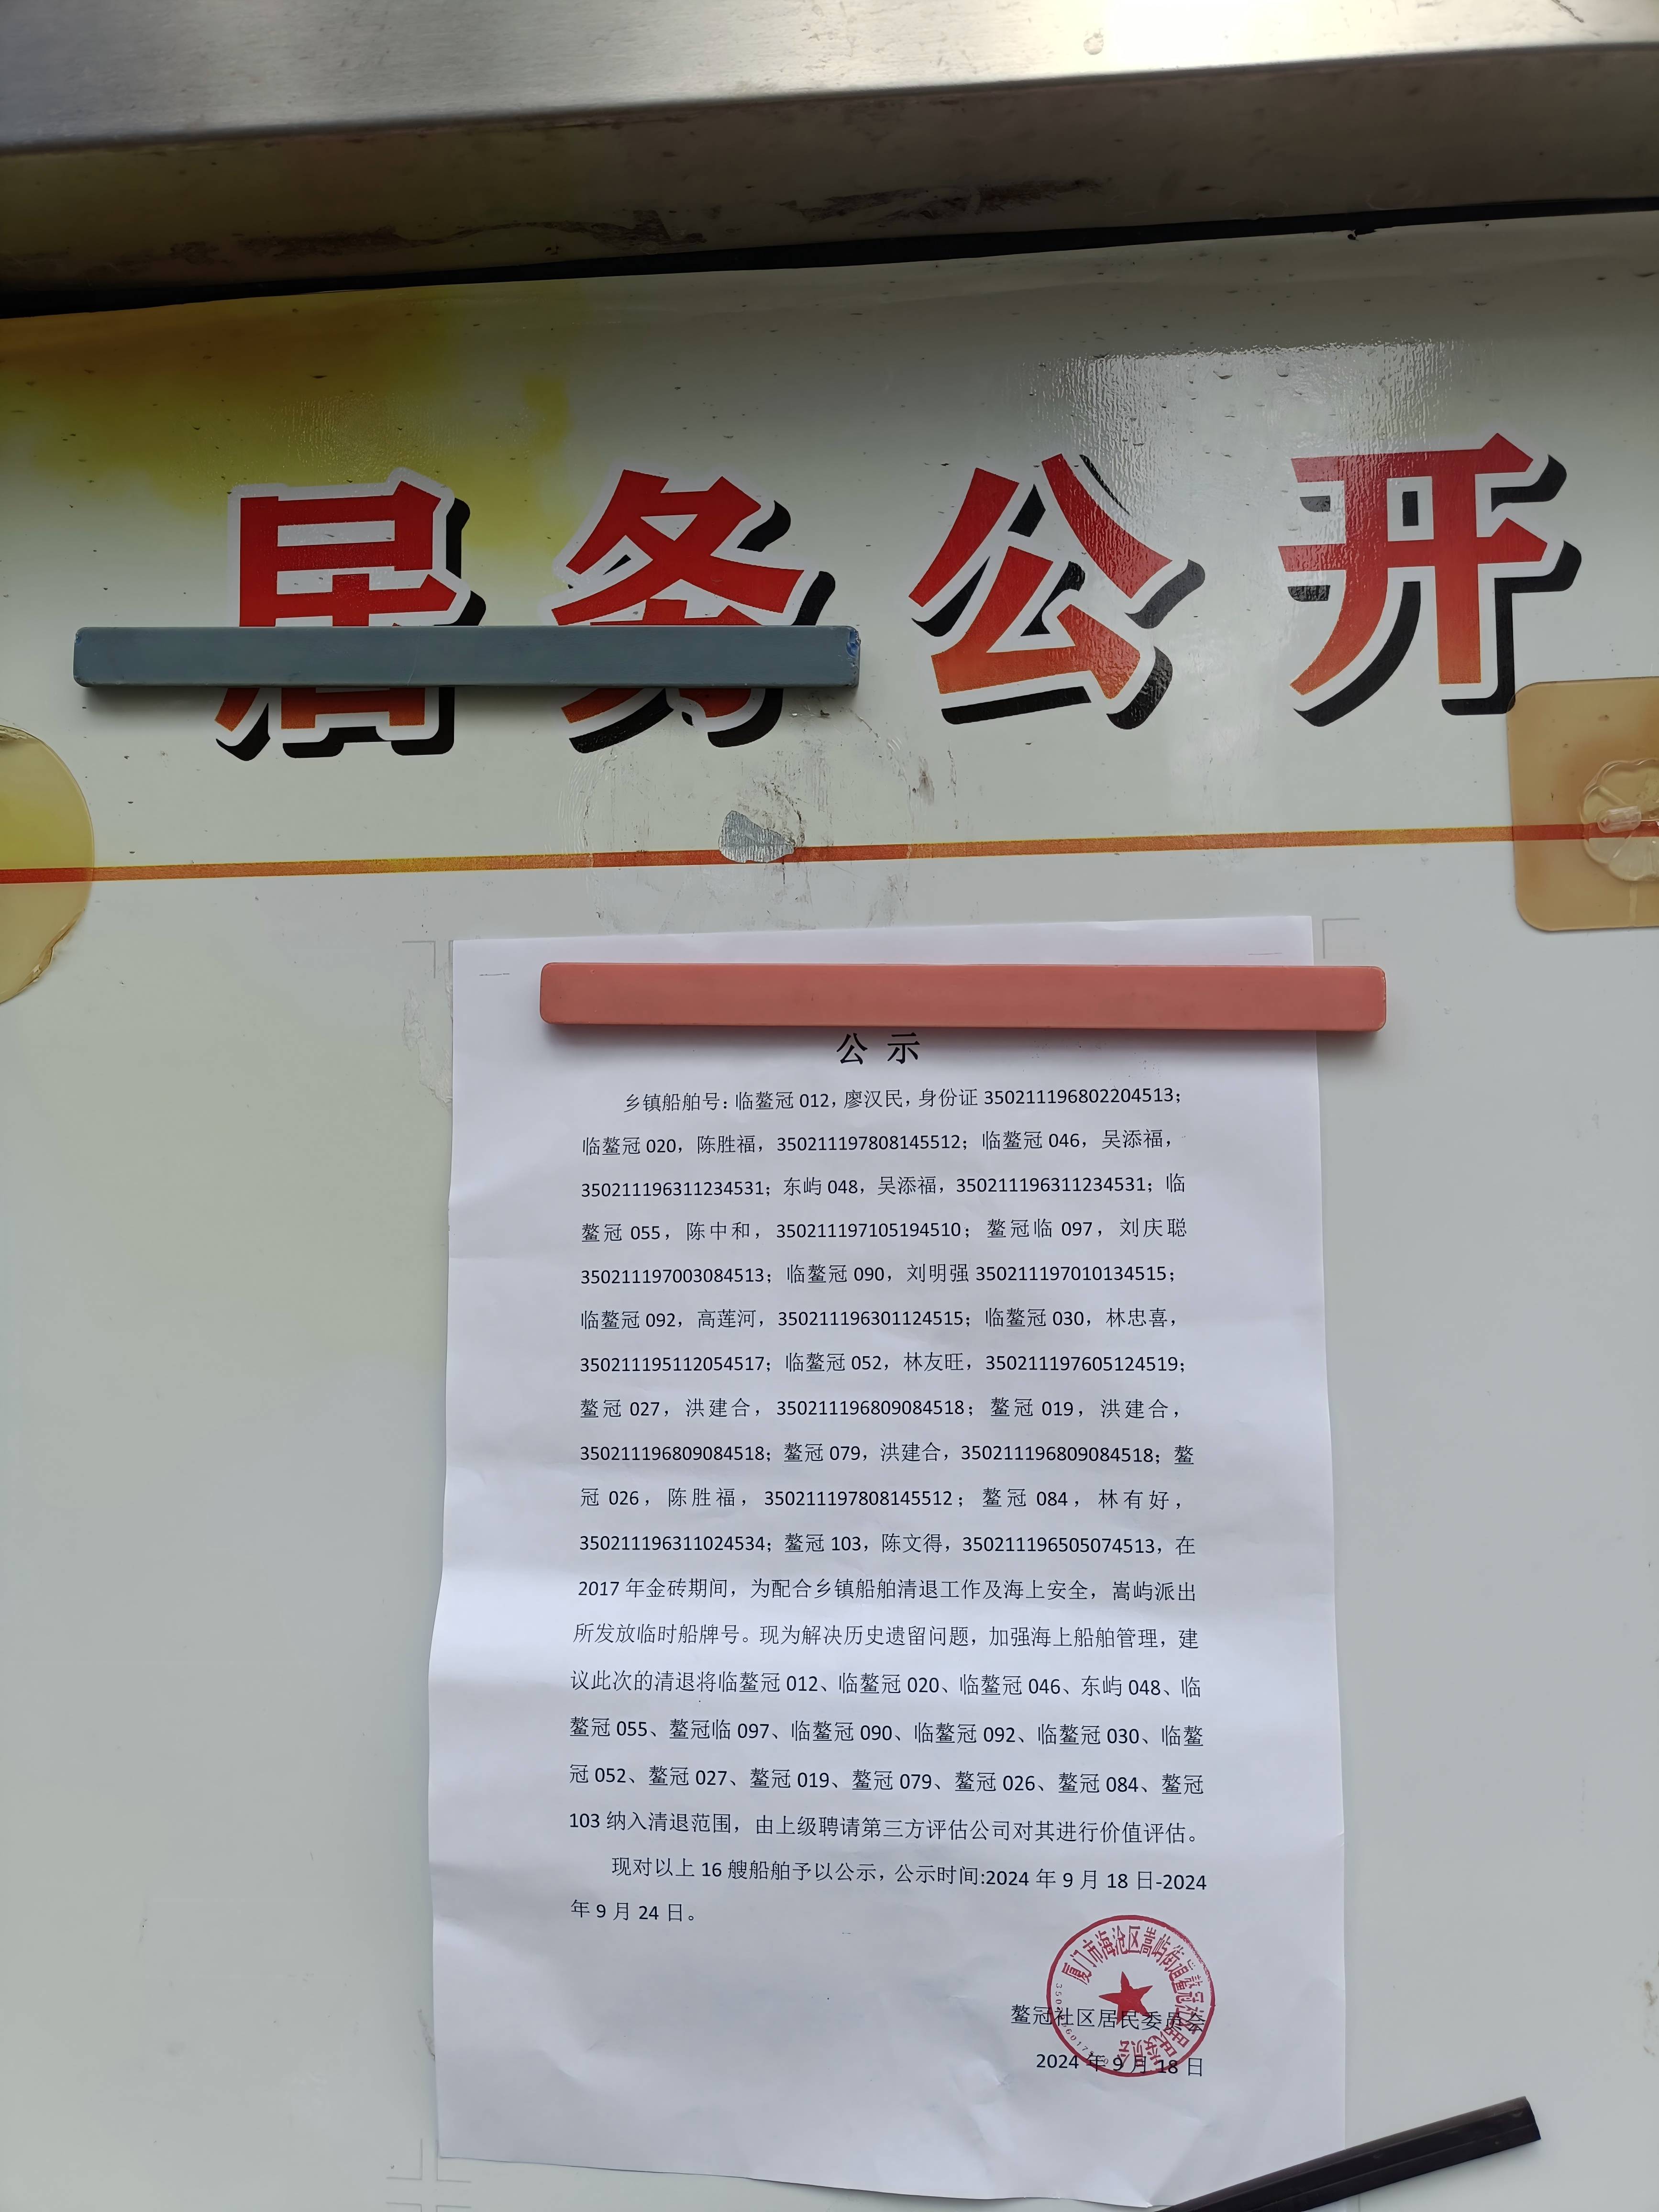 居务公开
公 示
乡镇船舶号：临鳌冠 012，廖汉民，身份证 350211196802204513；
临鳌冠 020，陈胜福，350211197808145512；临鳌冠 046，吴添福，
350211196311234531；东屿 048，吴添福，350211196311234531；临
鳌冠 055，陈中和，350211197105194510；鳌冠临 097，刘庆聪
350211197003084513；临鳌冠 090，刘明强 350211197010134515；
临鳌冠 092，高莲河，350211196301124515；临鳌冠 030，林忠喜，
350211195112054517；临鳌冠 052，林友旺，350211197605124519；
鳌冠 027，洪建合，350211196809084518；鳌冠 019，洪建合，
350211196809084518；鳌冠 079，洪建合，350211196809084518；鳌
冠 026，陈胜福，350211197808145512；鳌冠 084，林有好，
350211196311024534；鳌冠 103，陈文得，350211196505074513，在
2017 年金砖期间，为配合乡镇船舶清退工作及海上安全，嵩屿派出
所发放临时船牌号。现为解决历史遗留问题，加强海上船舶管理，建
议此次的清退将临鳌冠 012、临鳌冠 020、临鳌冠 046、东屿 048、临
鳌冠 055、鳌冠临 097、临鳌冠 090、临鳌冠 092、临鳌冠 030、临鳌
冠 052、鳌冠 027、鳌冠 019、鳌冠 079、鳌冠 026、鳌冠 084、鳌冠
103 纳入清退范围，由上级聘请第三方评估公司对其进行价值评估。
现对以上 16 艘船舶予以公示，公示时间:2024 年 9 月 18 日-2024
年 9 月 24 日。
厦门市海沧区嵩屿街道鳌冠社区居民委员会
鳌冠社区居民委员会
2024 年 9 月 18 日